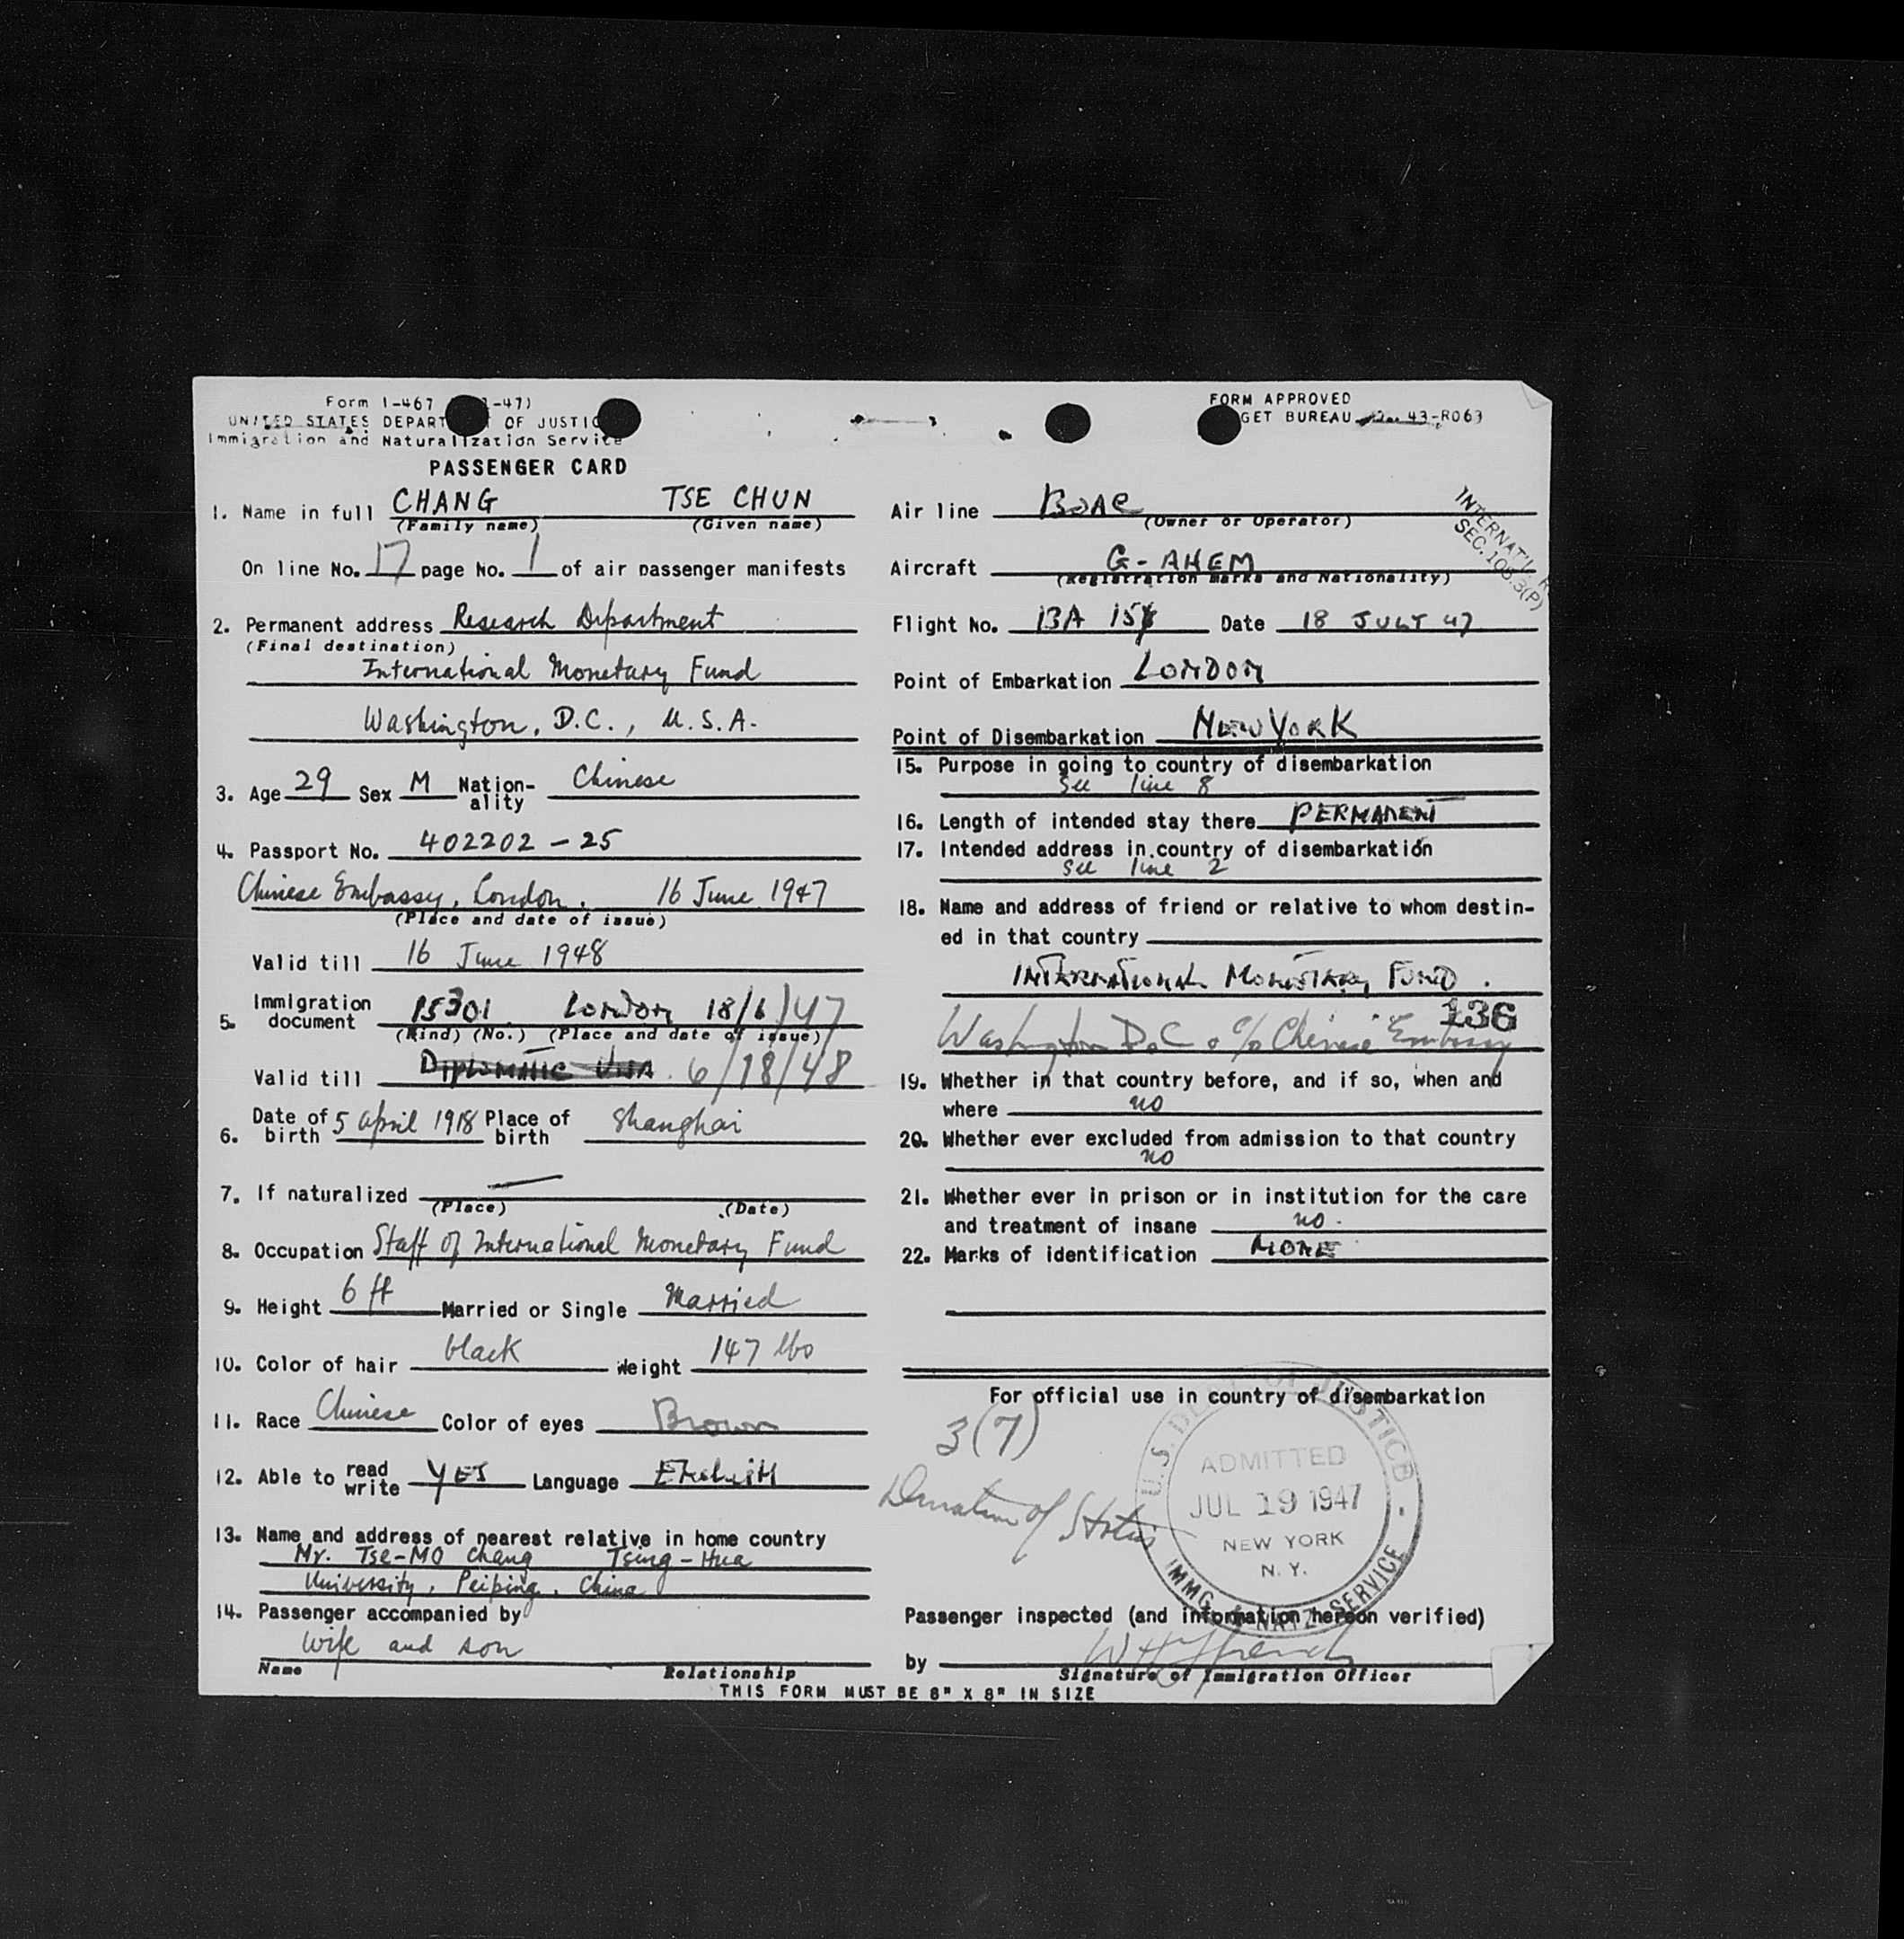 Form I-467 -47)
UNITED STATES DEPART OF JUSTIC
Immigration and Naturalization Service
PASSENGER CARD
1. Name in full CHANG TSE CHUN
(Family name) (Given name)
On line No. 17 page No. 1 of air passenger manifests
2. Permanent address Research Department
(Final destination)
International Monetary Fund
Washington, D.C., U.S.A.
3. Age 29 Sex M Nation-ality Chinese
4. Passport No. 402202-25
Chinese Embassy, London. 16 June 1947
(Place and date of issue)
Valid till 16 June 1948
5. Immigration document 15301 London 18/6/47
(Kind) (No.) (Place and date of issue)
Valid till DIPLOMATIC VISA 6/18/48
6. Date of birth 5 April 1918 Place of birth Shanghai
7. If naturalized —
(Place) (Date)
8. Occupation Staff of International Monetary Fund
9. Height 6 ft Married or Single Married
10. Color of hair black Weight 147 lbs
11. Race Chinese Color of eyes Brown
12. Able to read write YES Language ENGLISH
13. Name and address of nearest relative in home country
Mr. Tse-Mo Chang Tsing-Hua
University, Peiping, China
14. Passenger accompanied by
Wife and son
Name Relationship
FORM APPROVED
GET BUREAU No. 43-R063
INTERNAT'L
SEC. 105.3(P)
Air line BOAC
(Owner or Operator)
Aircraft G-AHEM
(Registration marks and Nationality)
Flight No. BA Date 18 JULY 47
Point of Embarkation LONDON
Point of Disembarkation NEW YORK
15. Purpose in going to country of disembarkation
See line 8
16. Length of intended stay there PERMANENT
17. Intended address in country of disembarkation
See line 2
18. Name and address of friend or relative to whom destin-
ed in that country
INTERNATIONAL MONETARY FUND.
136
Washington D.C. c/o Chinese Embassy
19. Whether in that country before, and if so, when and
where no
20. Whether ever excluded from admission to that country
no
21. Whether ever in prison or in institution for the care
and treatment of insane no.
22. Marks of identification NONE
For official use in country of disembarkation
3(7)
Duration of Status
U.S. DEPT. OF JUSTICE
ADMITTED
JUL 19 1947
NEW YORK
N. Y.
IMMG. & NATZ. SERVICE
Passenger inspected (and information hereon verified)
by
Signature of Immigration Officer
THIS FORM MUST BE 8" X 8" IN SIZE